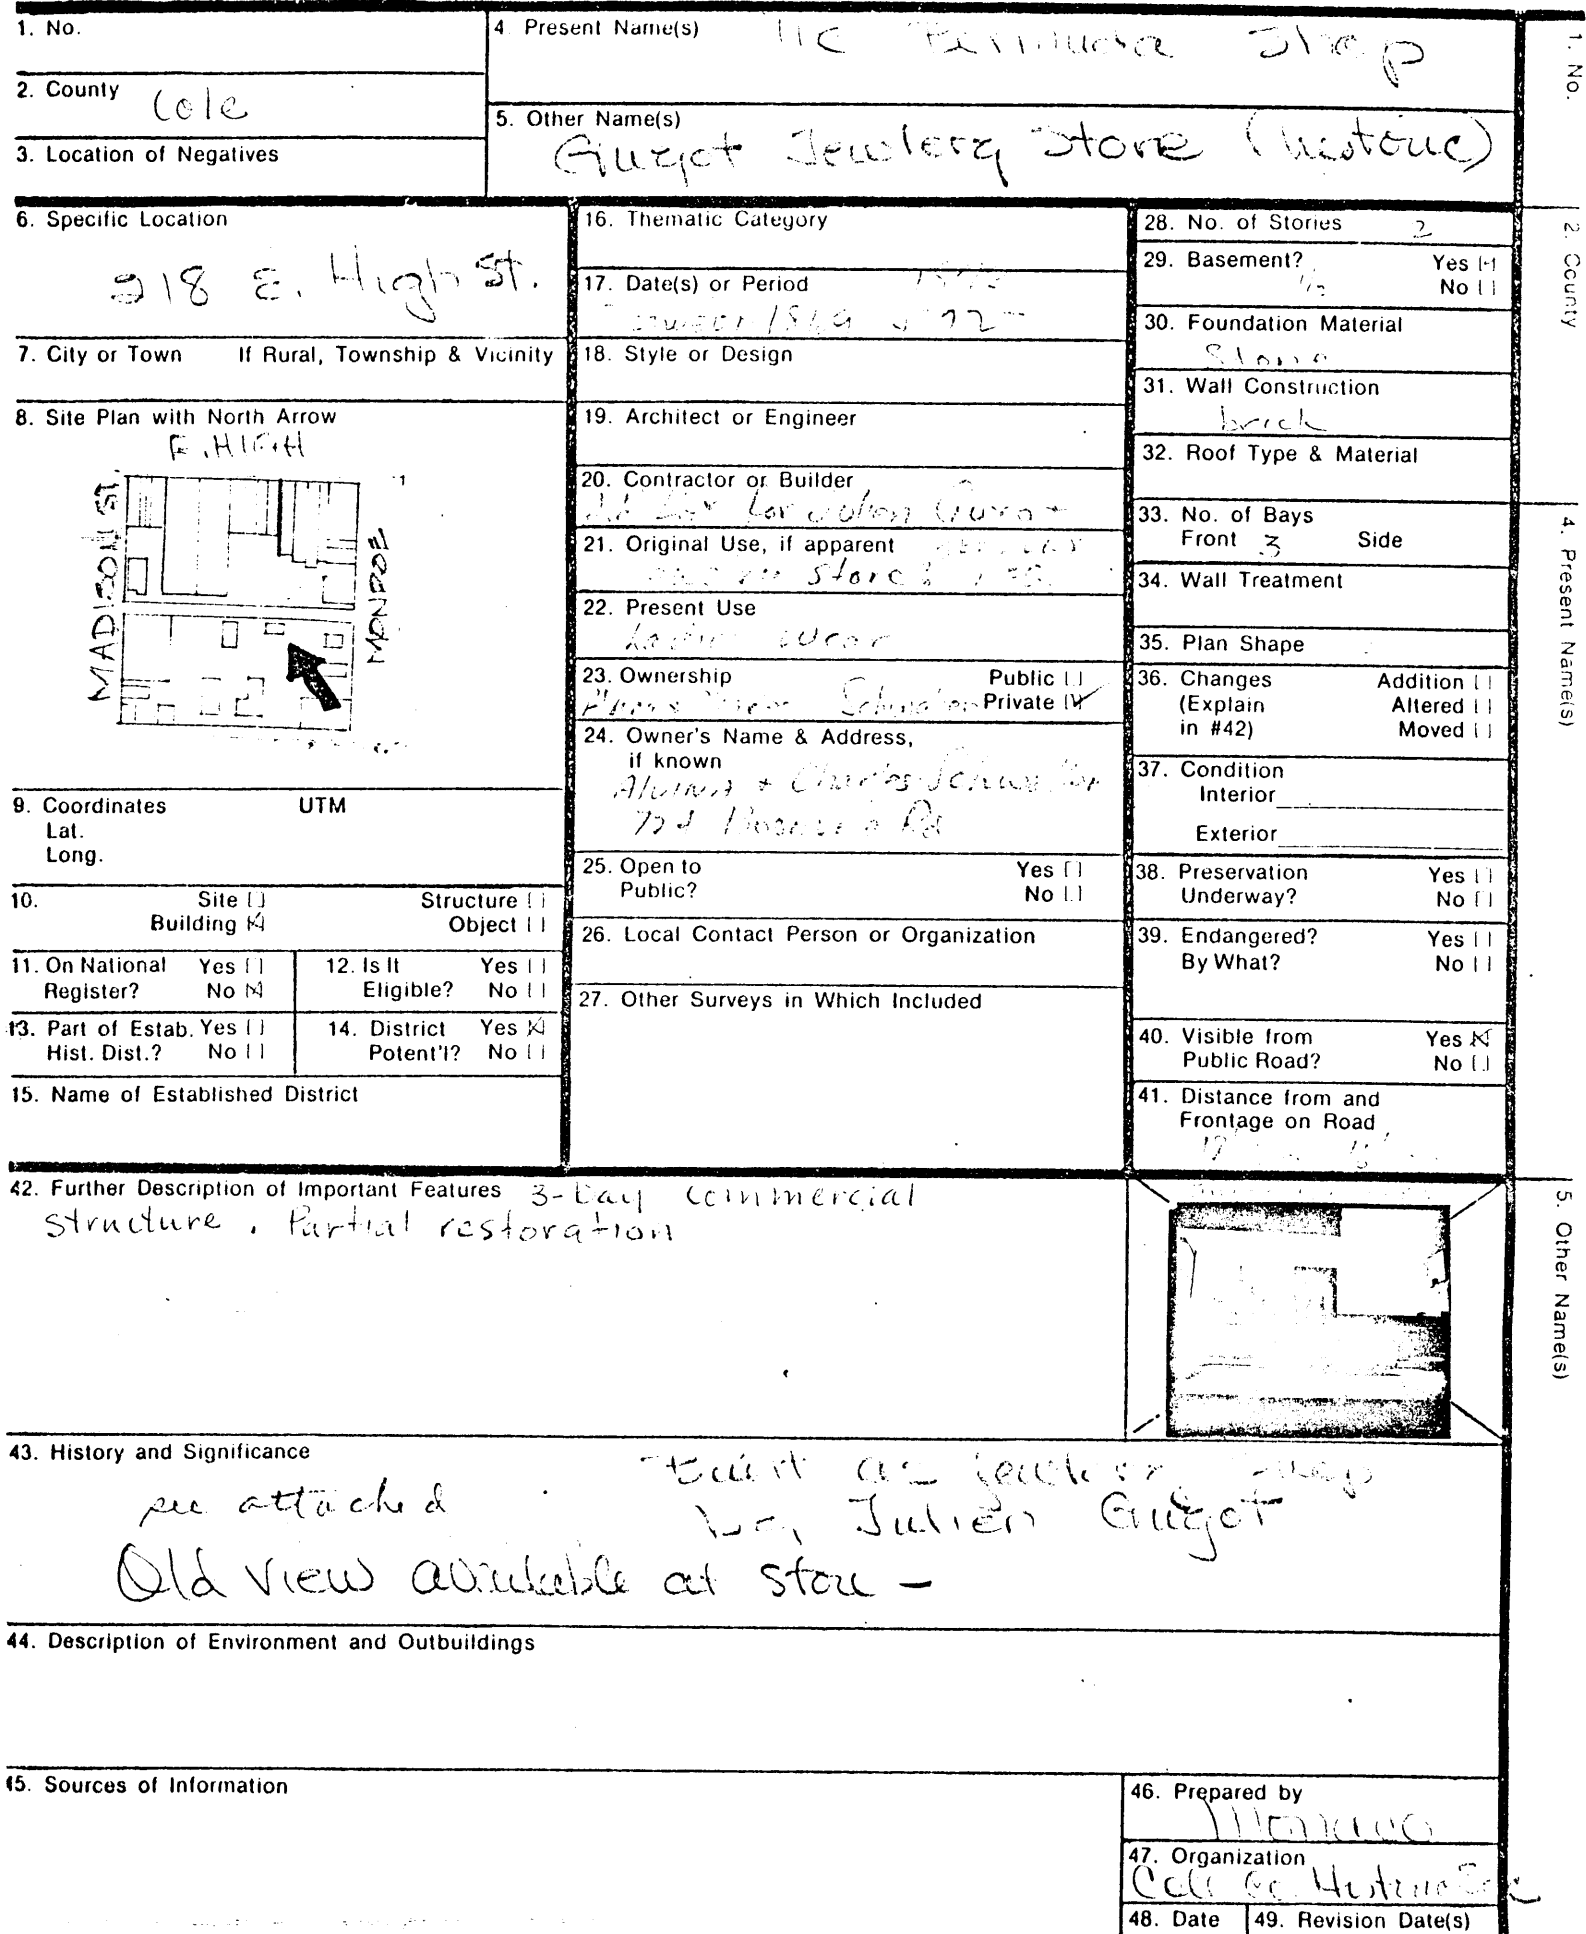 1. No.
4. Present Name(s) The Bermuda Shop
2. County Cole
5. Other Name(s)
Guyot Jewlery Store (historic)
3. Location of Negatives
6. Specific Location
218 E. High St.
7. City or Town If Rural, Township & Vicinity
8. Site Plan with North Arrow
E. HIGH
MADISON ST.
MONROE
9. Coordinates UTM
Lat.
Long.
10. Site [ ] Structure [ ]
Building [X] Object [ ]
11. On National Register? Yes [ ] No [X]
12. Is It Eligible? Yes [ ] No [ ]
13. Part of Estab. Hist. Dist.? Yes [ ] No [ ]
14. District Potent'l? Yes [X] No [ ]
15. Name of Established District
16. Thematic Category
17. Date(s) or Period
1869
18. Style or Design
19. Architect or Engineer
20. Contractor or Builder
for Julien Guyot
21. Original Use, if apparent
store
22. Present Use
Ladies wear
23. Ownership Public [ ]
Private [✓]
24. Owner's Name & Address,
if known
& Charles
Rd
25. Open to Public? Yes [ ] No [ ]
26. Local Contact Person or Organization
27. Other Surveys in Which Included
28. No. of Stories 2
29. Basement? Yes [ ]
1/2 No [ ]
30. Foundation Material
Stone
31. Wall Construction
brick
32. Roof Type & Material
33. No. of Bays
Front 3 Side
34. Wall Treatment
35. Plan Shape
36. Changes Addition [ ]
(Explain Altered [ ]
in #42) Moved [ ]
37. Condition
Interior
Exterior
38. Preservation Underway? Yes [ ] No [ ]
39. Endangered? Yes [ ]
By What? No [ ]
40. Visible from Public Road? Yes [X] No [ ]
41. Distance from and
Frontage on Road
42. Further Description of Important Features 3-bay commercial
structure. Partial restoration
43. History and Significance
Built as jewelry shop
see attached
by Julien Guyot
Old view available at store -
44. Description of Environment and Outbuildings
45. Sources of Information
46. Prepared by
47. Organization
Cole Co. Historic Soc
48. Date 49. Revision Date(s)
1. No.
2. County
4. Present Name(s)
5. Other Name(s)